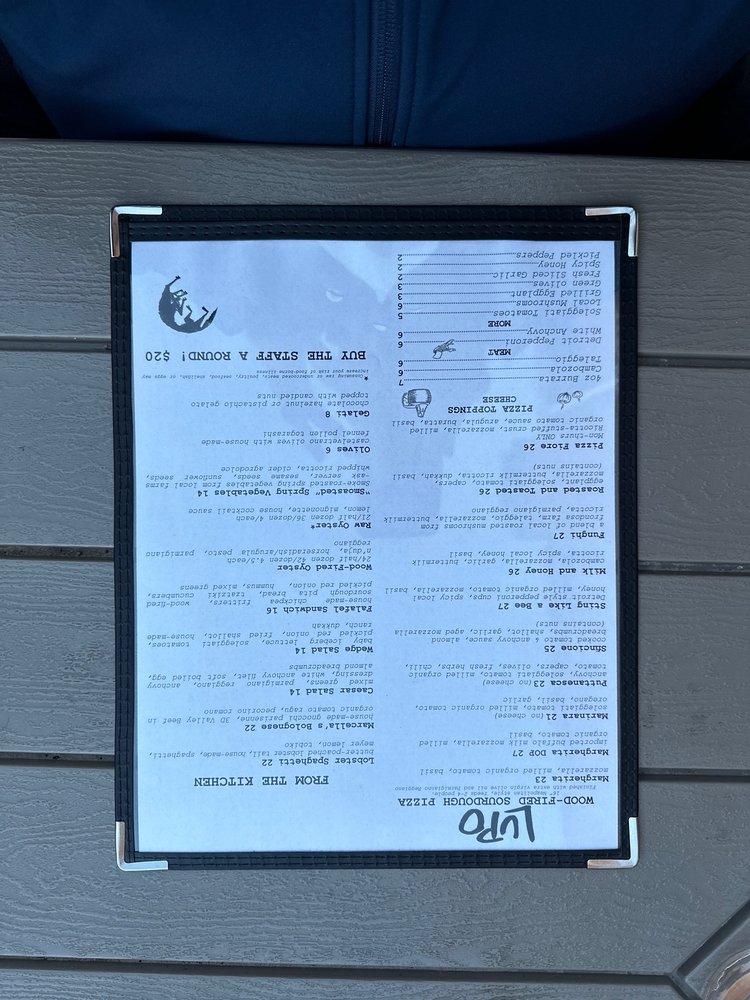 LUPO
WOOD-FIRED SOURDOUGH PIZZA
16" Neapolitan style, feeds 2-4 people-
Finished with extra virgin olive oil and Parmigiano Reggiano
Margherita 23
mozzarella, milled organic tomato, basil
Margherita DOP 27
imported bufalo milk mozzarella, milled
organic tomato, basil
Marinara 21 (no cheese)
soleggiati tomato, milled organic tomato,
oregano, basil, garlic
Puttanesca 23 (no cheese)
anchovy, soleggiati tomato, milled organic
tomato, capers, olives, fresh herbs, chili,
Sfincione 25
cooked tomato & anchovy sauce, almond
breadcrumbs, shallot, garlic, aged mozzarella
(contains nuts)
Sting Like a Bee 27
Detroit style pepperoni cups, spicy local
honey, milled organic tomato, mozzarella, basil
Milk and Honey 26
cambozola, mozzarella, garlic, buttermilk
ricotta, spicy local honey, basil
Funghi 27
a blend of local roasted mushrooms from
frondosa farm, taleggio, mozzarella, buttermilk
ricotta, parmigiano reggiano
Roasted and Toasted 26
eggplant, soleggiati tomato, capers,
mozzarella, buttermilk ricotta, dukkah, basil
(contains nuts)
Pizza Fiore 26
Mon-thurs ONLY
Ricotta-stuffed crust, mozzarella, milled
organic tomato sauce, arugula, burrata, basil
PIZZA TOPPINGS
CHEESE
4oz Burrata 7
Cambozola 6
Taleggio 6
MEAT
Detroit Pepperoni 6
White Anchovy 6
MORE
Soleggiati Tomatoes 5
Local Mushrooms 6
Grilled Eggplant 3
Green olives 3
Fresh Sliced Garlic 2
Spicy Honey 2
Pickled Peppers 2
FROM THE KITCHEN
Lobster Spaghetti 22
butter-poached lobster tail, house-made, spaghetti,
meyer lemon, tobiko
Marcella's Bolognese 22
house-made gnocchi parisenne, 3D Valley Beef in
organic tomato ragu, pecorino romano
Caesar Salad 14
mixed greens, parmigiano reggiano, anchovy
dressing, white anchovy filet, soft boiled egg,
almond breadcrumbs
Wedge Salad 14
baby iceberg lettuce, soleggiati tomatoes,
pickled red onion, fried shallot, house-made
ranch, dukkah
Falafel Sandwich 16
house-made chickpea fritters, wood-fired
sourdough pita bread, tzatziki cucumbers,
pickled red onion, hummus, mixed greens
Wood-Fired Oyster
24/half dozen 42/dozen 4.5/each
n'duja, horseradish/arugula pesto, parmigiano
reggiano
Raw Oyster*
21/half dozen 36/dozen 4/each
lemon, mignonette, house cocktail sauce
"Smoasted" Spring Vegetables 14
Smoke-roasted spring vegetables from local farms
-ask server, sesame seeds, sunflower seeds,
whipped ricotta, cider agrodolce
Olives 6
castelvetrano olives with house-made
fennel pollen togarashi
Gelati 8
chocolate hazelnut or pistachio gelato
topped with candied nuts
*Consuming raw or undercooked meats, poultry, seafood, shellfish, or eggs may
increase your risk of food-borne illness
BUY THE STAFF A ROUND! $20